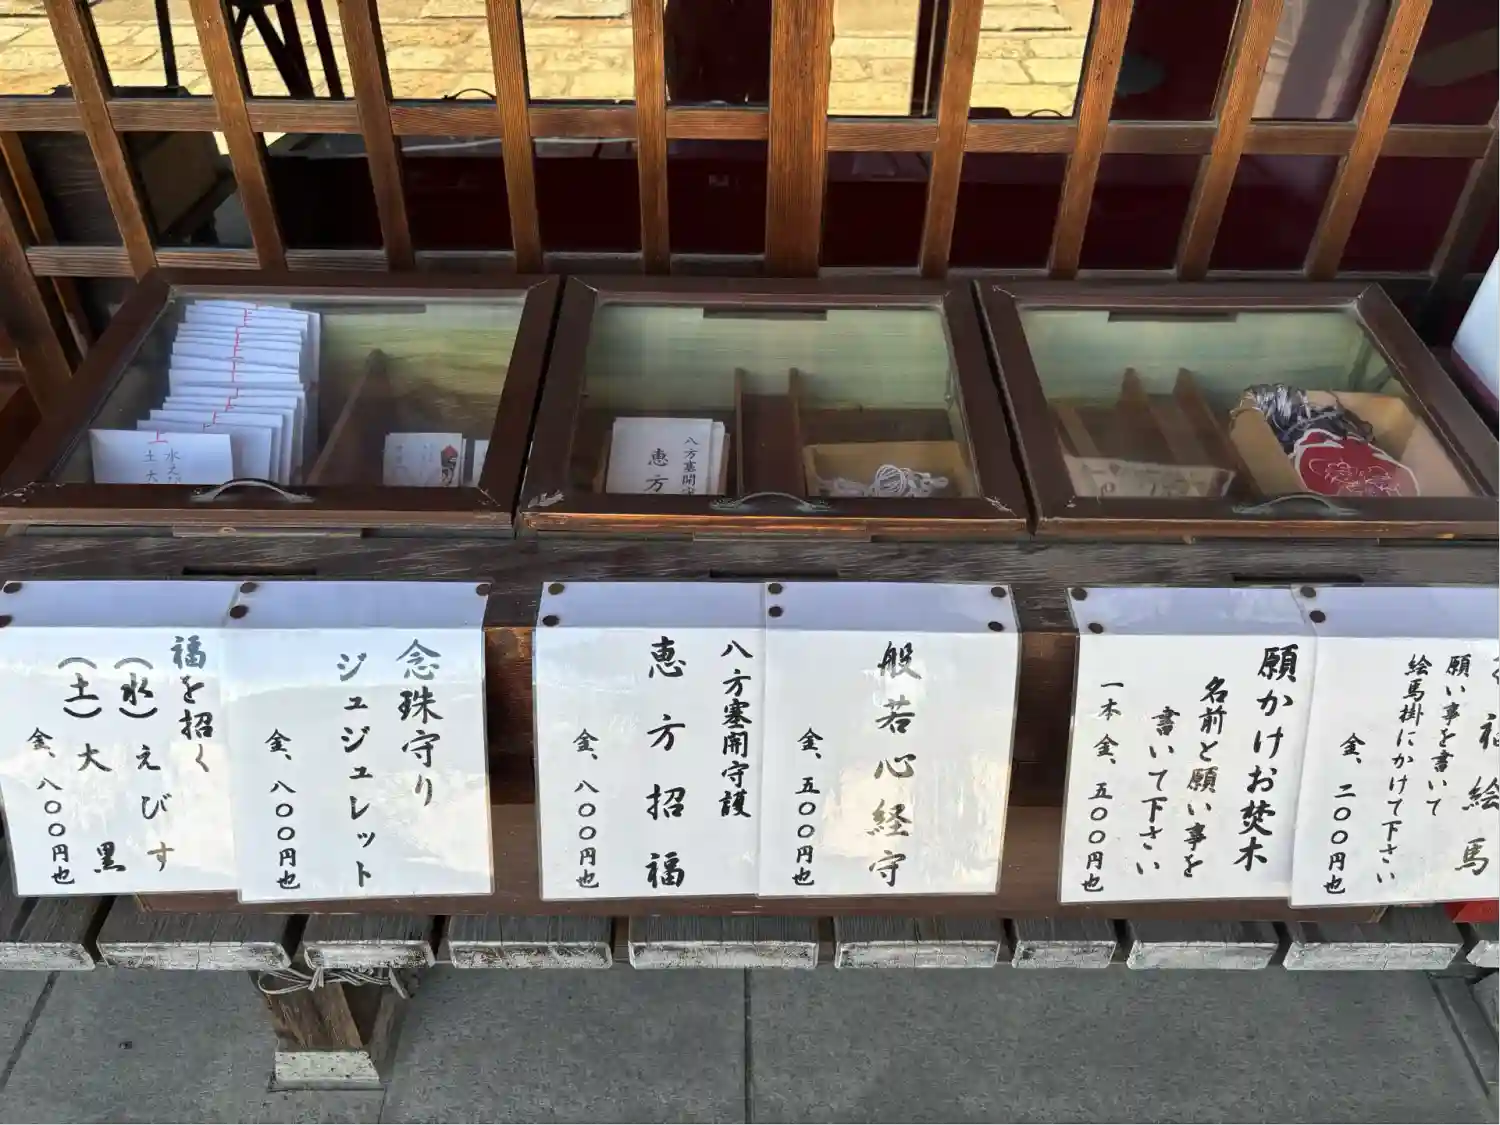 福を招く
（水）えびす
（土）大黒
金、八〇〇円也
念珠守り
ジュジュレット
金、八〇〇円也
八方塞開守護
恵方招福
金、八〇〇円也
般若心経守
金、五〇〇円也
願かけお焚木
名前と願い事を
書いて下さい
一本 金、五〇〇円也
福絵馬
願い事を書いて
絵馬掛にかけて下さい
金、二〇〇円也
上
水え
土 大
八方塞開守
恵方